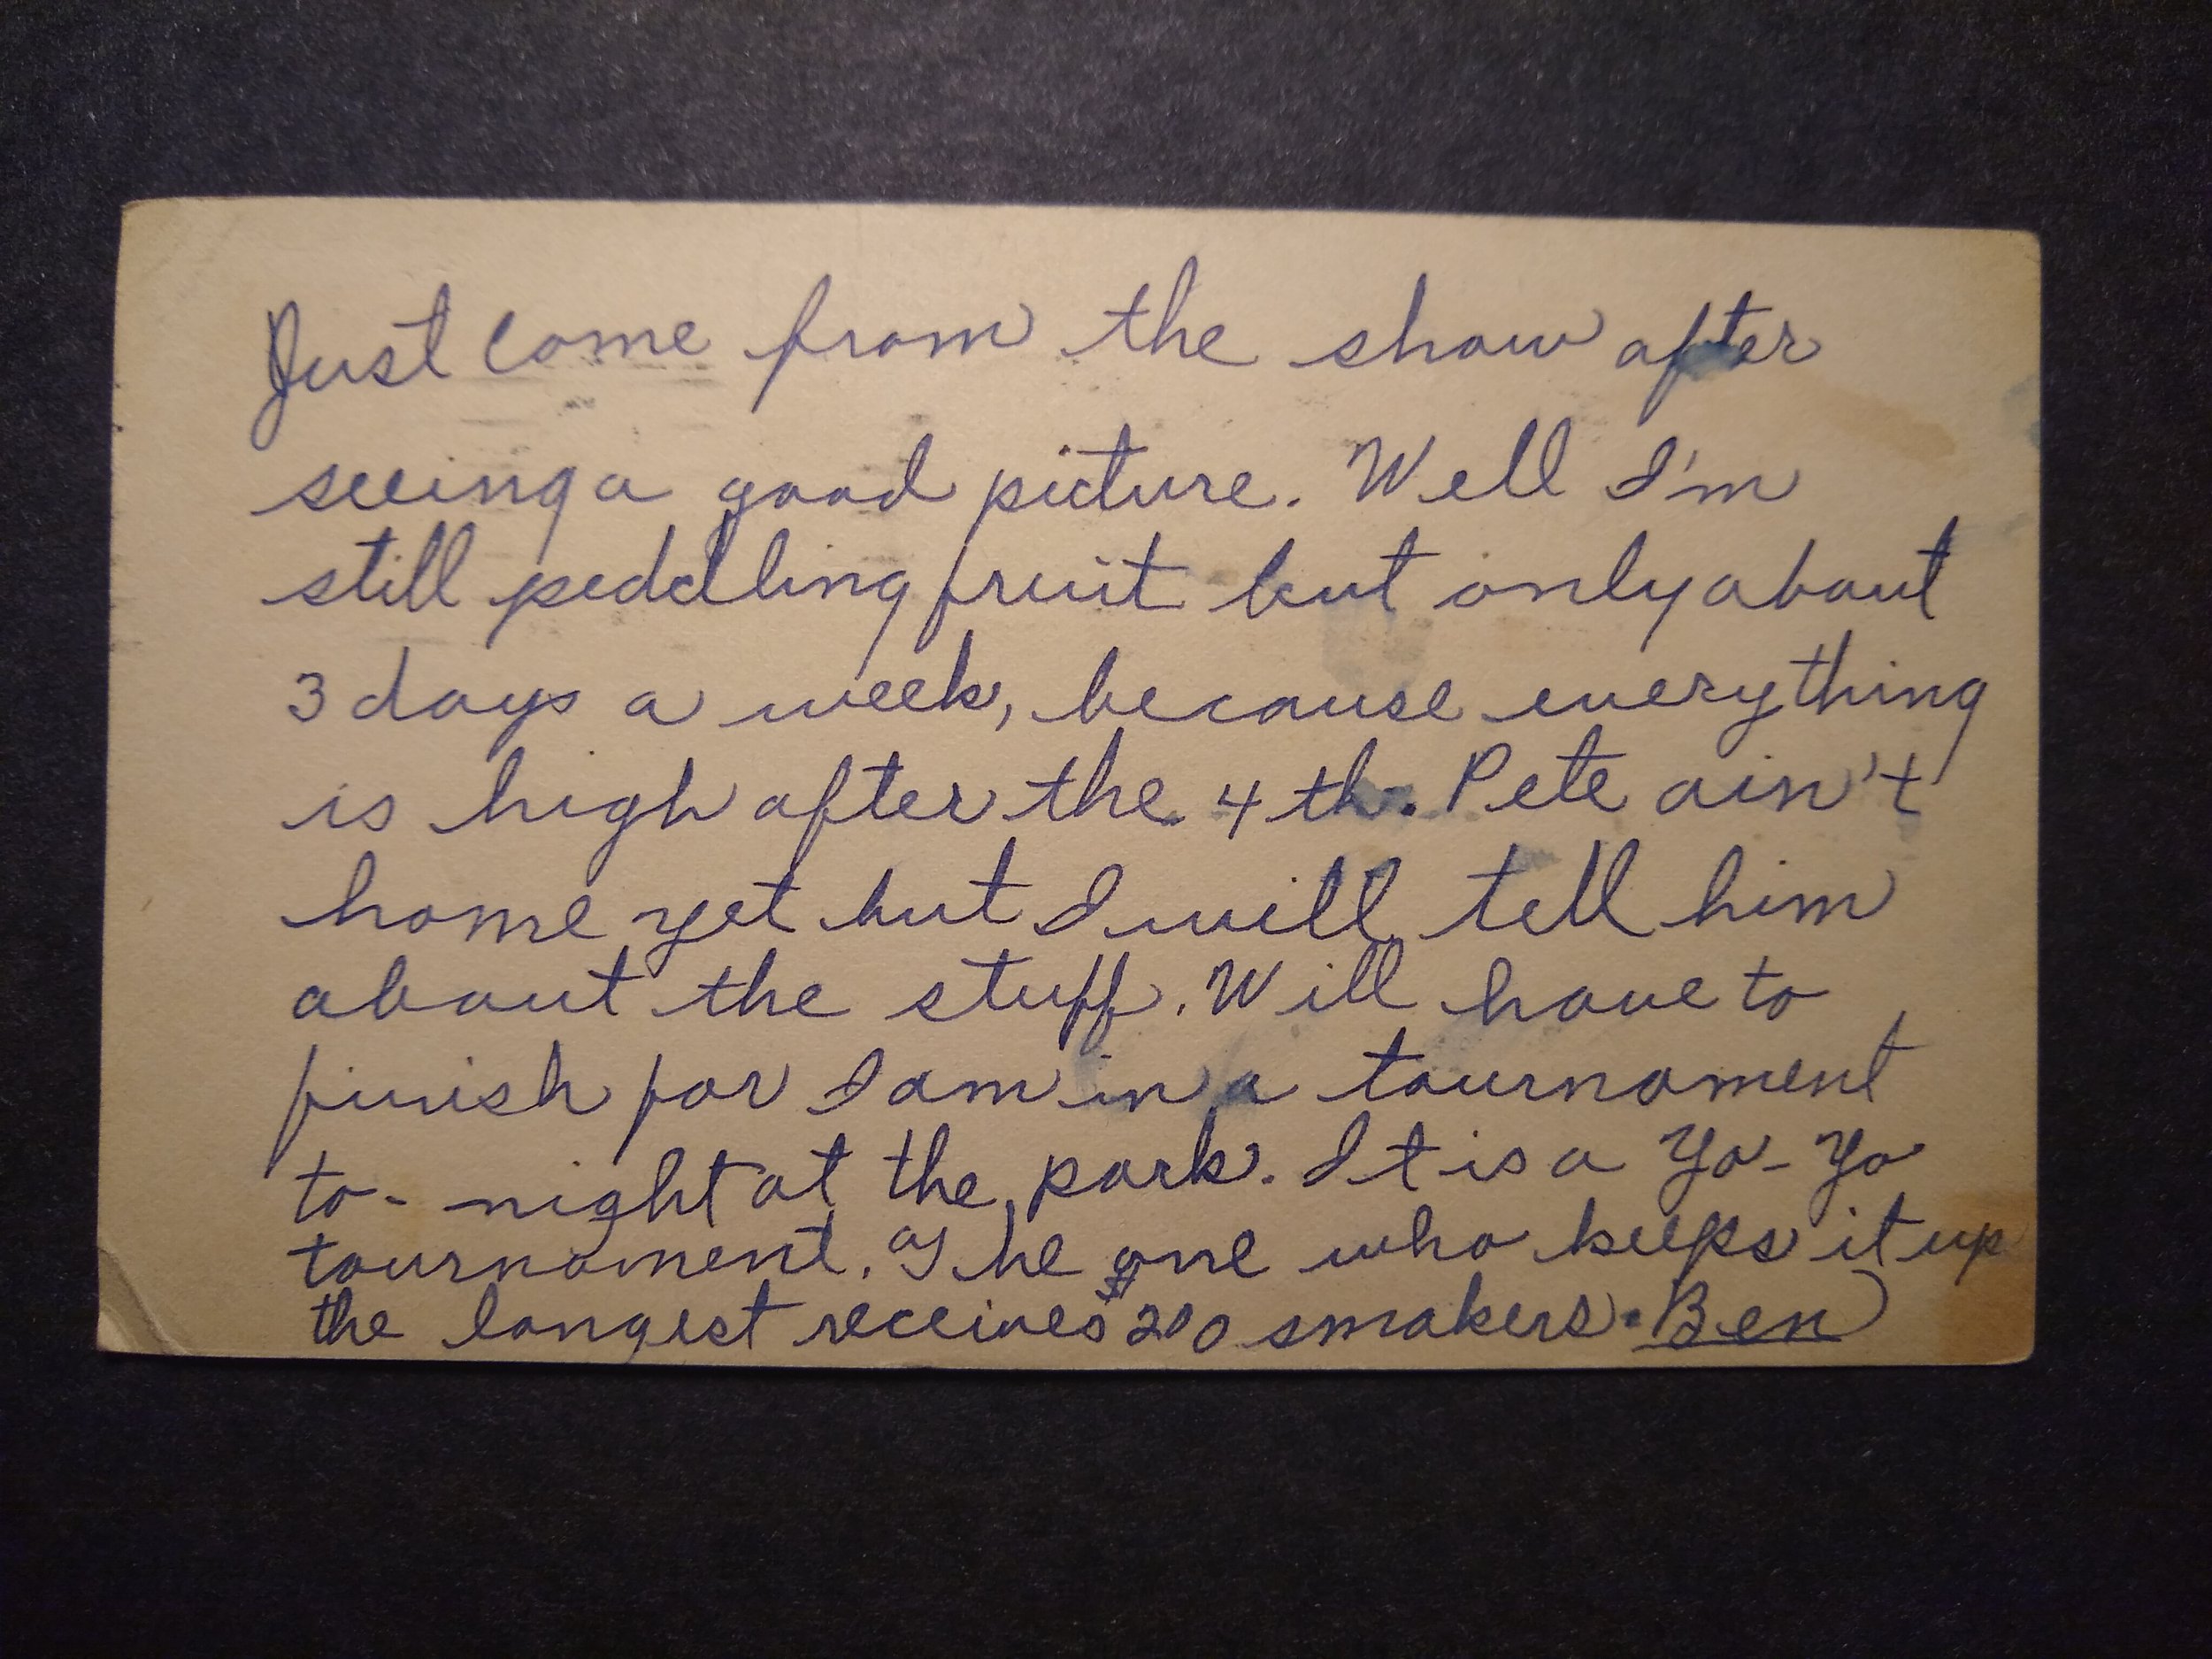 Just come from the show after
seeing a good picture. Well I'm
still peddling fruit but only about
3 days a week, because everything
is high after the 4th. Pete ain't
home yet but I will tell him
about the stuff. Will have to
finish for I am in a tournament
to-night at the park. It is a Yo-Yo
tournament. The one who keeps it up
the longest receives $200 smakers. Ben